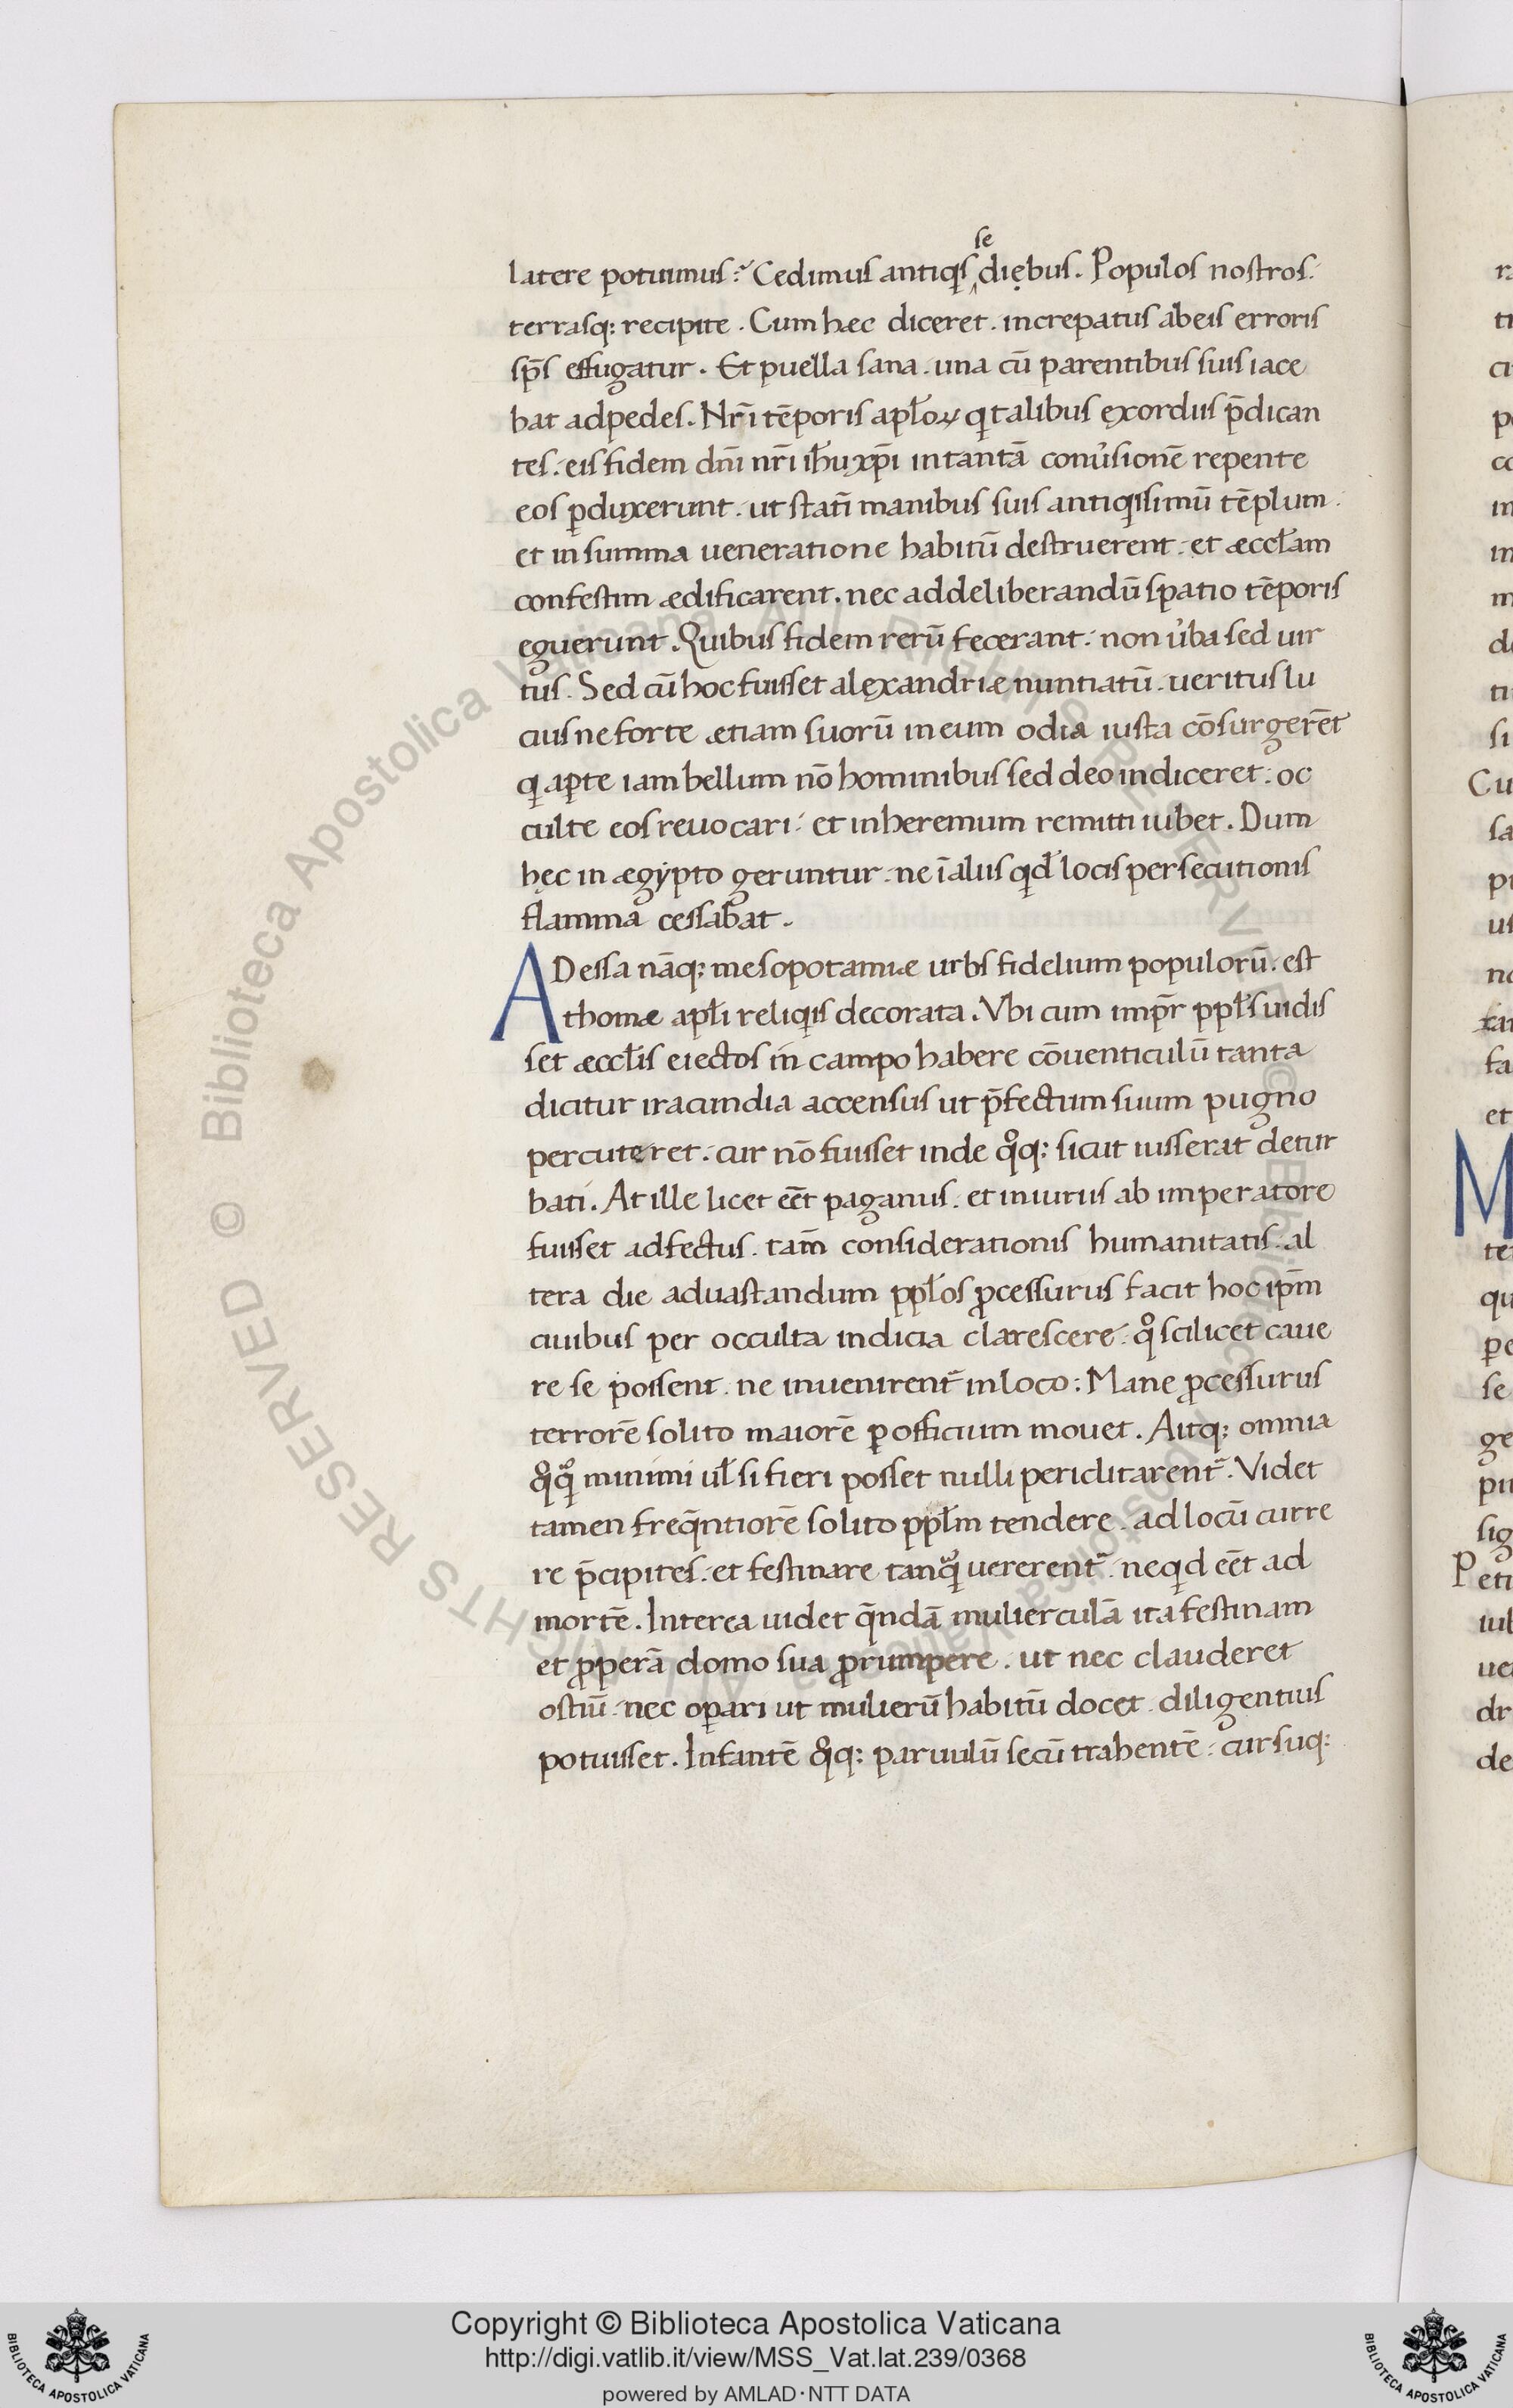 latere potuimus? Cedimus antiqis se diębus. Populos nostros.
terrasq: recipite. Cum hæc diceret. increpatus ab eis erroris
sp̄s effugatur. Et puella sana. una cū parentibus suis iace
bat ad pedes. Nr̄i tēporis apłoꝝ qi talibus exordiis p̄dican
tes. eis fidem dn̄i nr̄i ih̄u xp̄i in tantā conu̓sionē repente
eos ꝑduxerunt. ut statī manibus suis antiqissimū tēplum.
et in summa ueneratione habitū destruerent. et æccłam
confestim ædificarent. nec ad deliberandū spatio tēporis
eguerunt. Quibus fidem rerū fecerant. non u̓ba sed uir
tus. Sed cū hoc fuisset alexandriæ nuntiatū. ueritus lu
cius ne forte ætiam suorū in eum odia iusta cōsurgerēt
qi aꝑte iam bellum nō hominibus sed deo indiceret. oc
culte eos reuocari. et in heremum remitti iubet. Dum
hęc in ægypto geruntur. ne ī aliis qid̄ locis persecutionis
flamma cessabat.
ADessa nāq: mesopotamiæ urbs fidelium populorū. est
thomæ apłi reliqiis decorata. Vbi cum imp̄r ppłs uidis
set æccłis eiectos in campo habere cōuenticulū tanta
dicitur iracundia accensus ut p̄fectum suum pugno
percuteret. cur nō fuisset inde qͦq: sicut iusserat detur
bati. At ille licet eēt paganus. et iniuriis ab imperatore
fuisset adfectus. tam̄ considerationis humanitatis. al
tera die ad uastandum ppłos ꝓcessurus facit hoc ip̄m
ciuibus per occulta indicia clarescere. qͦ scilicet caue
re se possent. ne inuenirent᷑ in loco: Mane ꝓcessurus
terrorē solito maiorē ꝑ officium mouet. Aitq: omnia
qͦqͣ minimi uł si fieri posset nulli periclitarent᷑. Videt
tamen freq̄ntiorē solito ppłm tendere. ad locū curre
re p̄cipites. et festinare tanqͣ uererent᷑. ne qid eēt ad
mortē. Interea uidet q̄ndā mulierculā ita festinam
et ꝓperā domo sua ꝓrumpere. ut nec clauderet
ostiū. nec oꝑari ut mulierū habitū docet. diligentius
potuisset. Infantē qͦq: paruulū secū trahentē. cursuq:
Copyright © Biblioteca Apostolica Vaticana
http://digi.vatlib.it/view/MSS_Vat.lat.239/0368
powered by AMLAD·NTT DATA